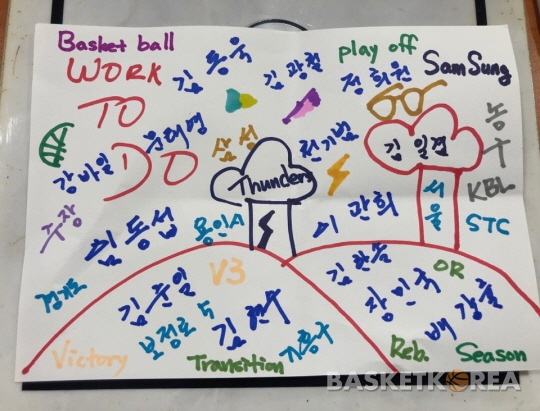 Basket ball
play off
WORK
김동욱
김광철
정희원
SamSung
TO
삼성
전기범
김일겸
농구
강바일
DO
Thunders
서울
KBL
주장
이동섭
용인A
이관희
STC
경기도
V3
OR
김준일
장민국
보정로 5
김현수
배강률
기흥구
Victory
Transition
Reb.
Season
BASKETKOREA